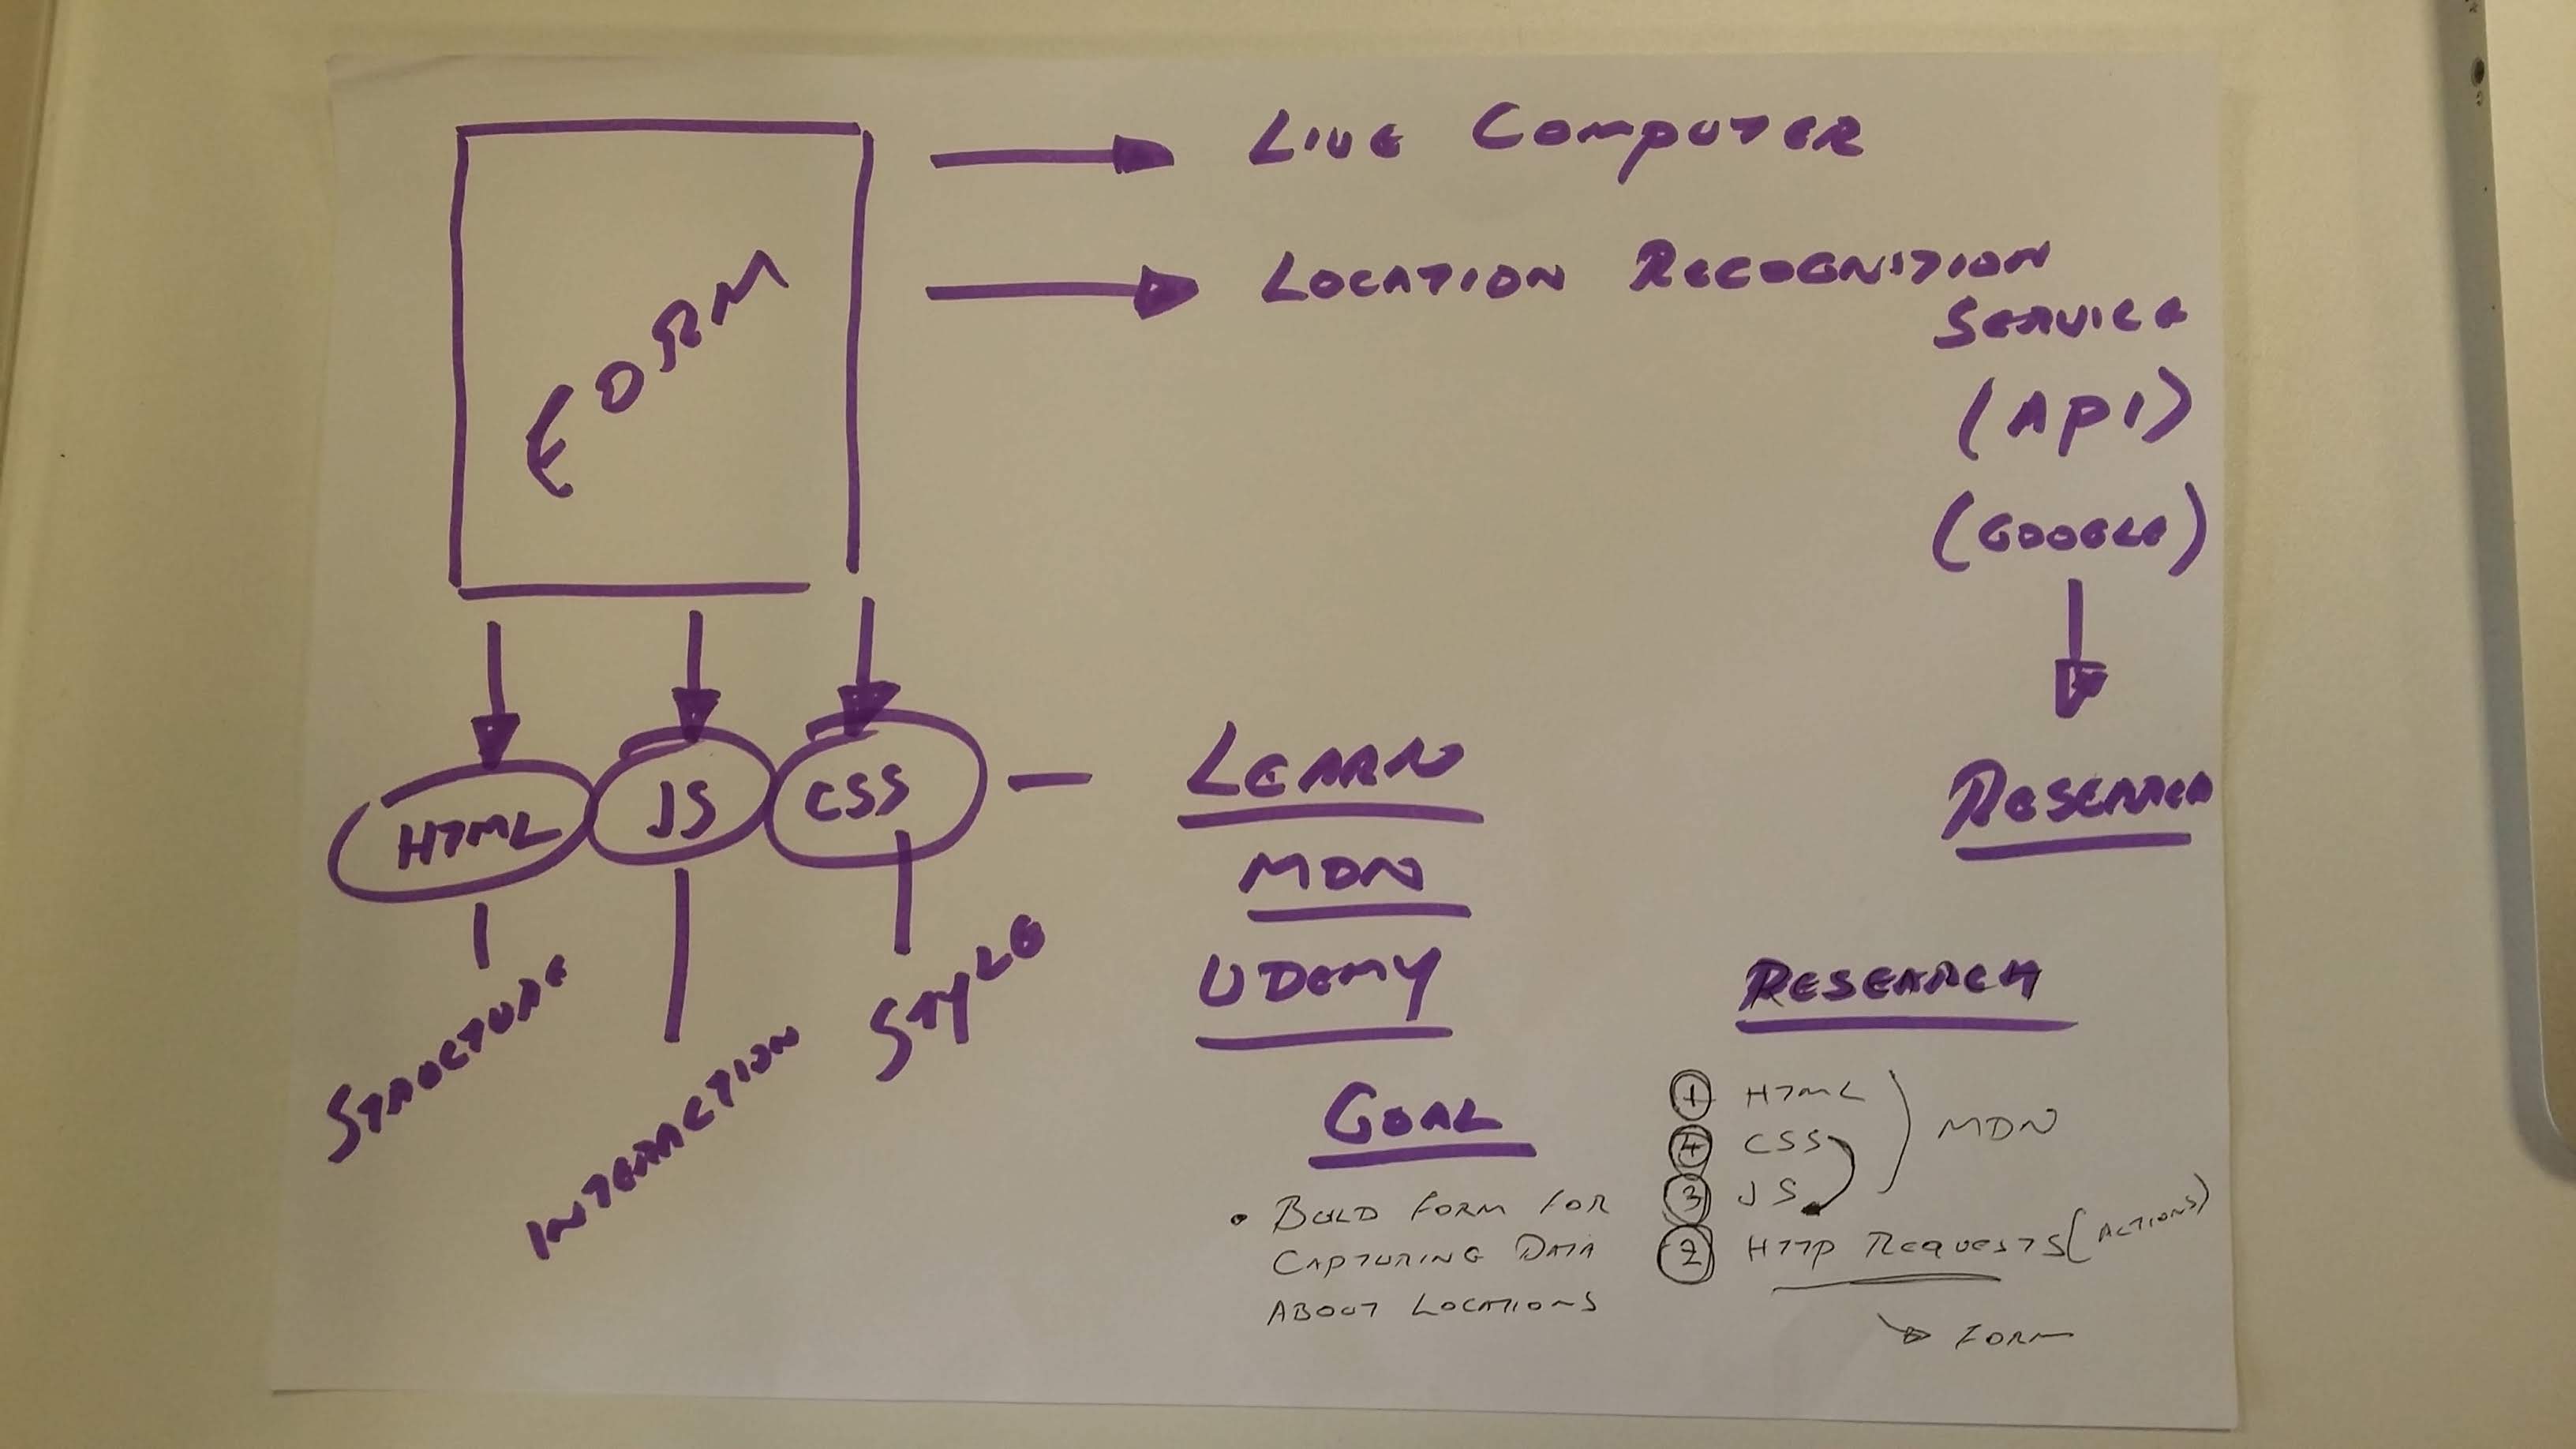 LIVE COMPUTER
LOCATION RECOGNITION
SERVICE
(API)
(GOOGLE)
RESEARCH
FORM
HTML
JS
CSS
STRUCTURE
INTERACTION
STYLE
LEARN
MDN
UDEMY
GOAL
• BUILD FORM FOR
CAPTURING DATA
ABOUT LOCATIONS
RESEARCH
1 HTML
4 CSS
3 JS
MDN
2 HTTP REQUESTS (ACTIONS)
FORM